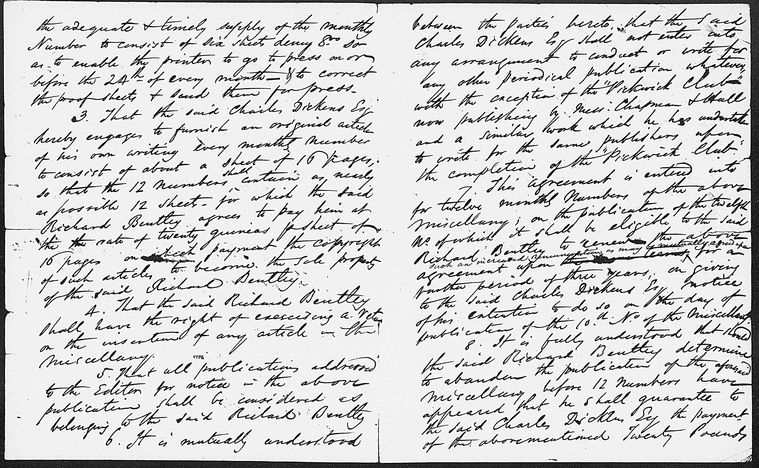 the adequate & timely supply of the monthly
Number to consist of six sheets demy 8vo so
as to enable the printer to go to press on or
before the 24th of every month & to correct
the proof sheets & send them for press.
3. That the said Charles Dickens Esq
hereby engages to furnish an original article
of his own writing every monthly number
to consist of about a sheet of 16 pages;
so that the 12 numbers shall contain as nearly
as possible 12 sheets for which the said
Richard Bentley agrees to pay him at
the the rate of twenty guineas p. sheet of
16 pages on payment the copyright
of such articles to become the sole property
of the said Richard Bentley.
4. That the said Richard Bentley
shall have the right of exercising a Veto
on the insertion of any article in the
Miscellany.
5. That all publications addressed
to the Editor for notice in the above
publication shall be considered as
belonging to the said Richard Bentley
6. It is mutually understood
between the parties hereto, that the said
Charles Dickens Esq shall not enter into
any arrangement to conduct or write for
any other periodical publication whatever,
with the exception of the "Pickwick Club"
now publishing by Messrs Chapman & Hall
and a similar work which he has undertaken
to write for the same publishers upon
the completion of the "Pickwick Club"
7. This agreement is entered into
for twelve monthly Numbers of the above
Miscellany; on the publication of the twelfth
No of which it shall be eligible to the said
Richard Bentley to renew the above
such an increased as may be mutually agreed upon
agreement upon for a
further period of three years, on giving
to the said Charles Dickens Esq notice
of his intention to do so, on the day of
publication of the 10th No of the Miscellany.
8. It is fully understood that should
the said Richard Bentley determine
to abandon the publication of the aforesaid
Miscellany before 12 Numbers have
appeared that he shall guarantee to
the said Charles Dickens Esq the payment
of the abovementioned Twenty Pounds